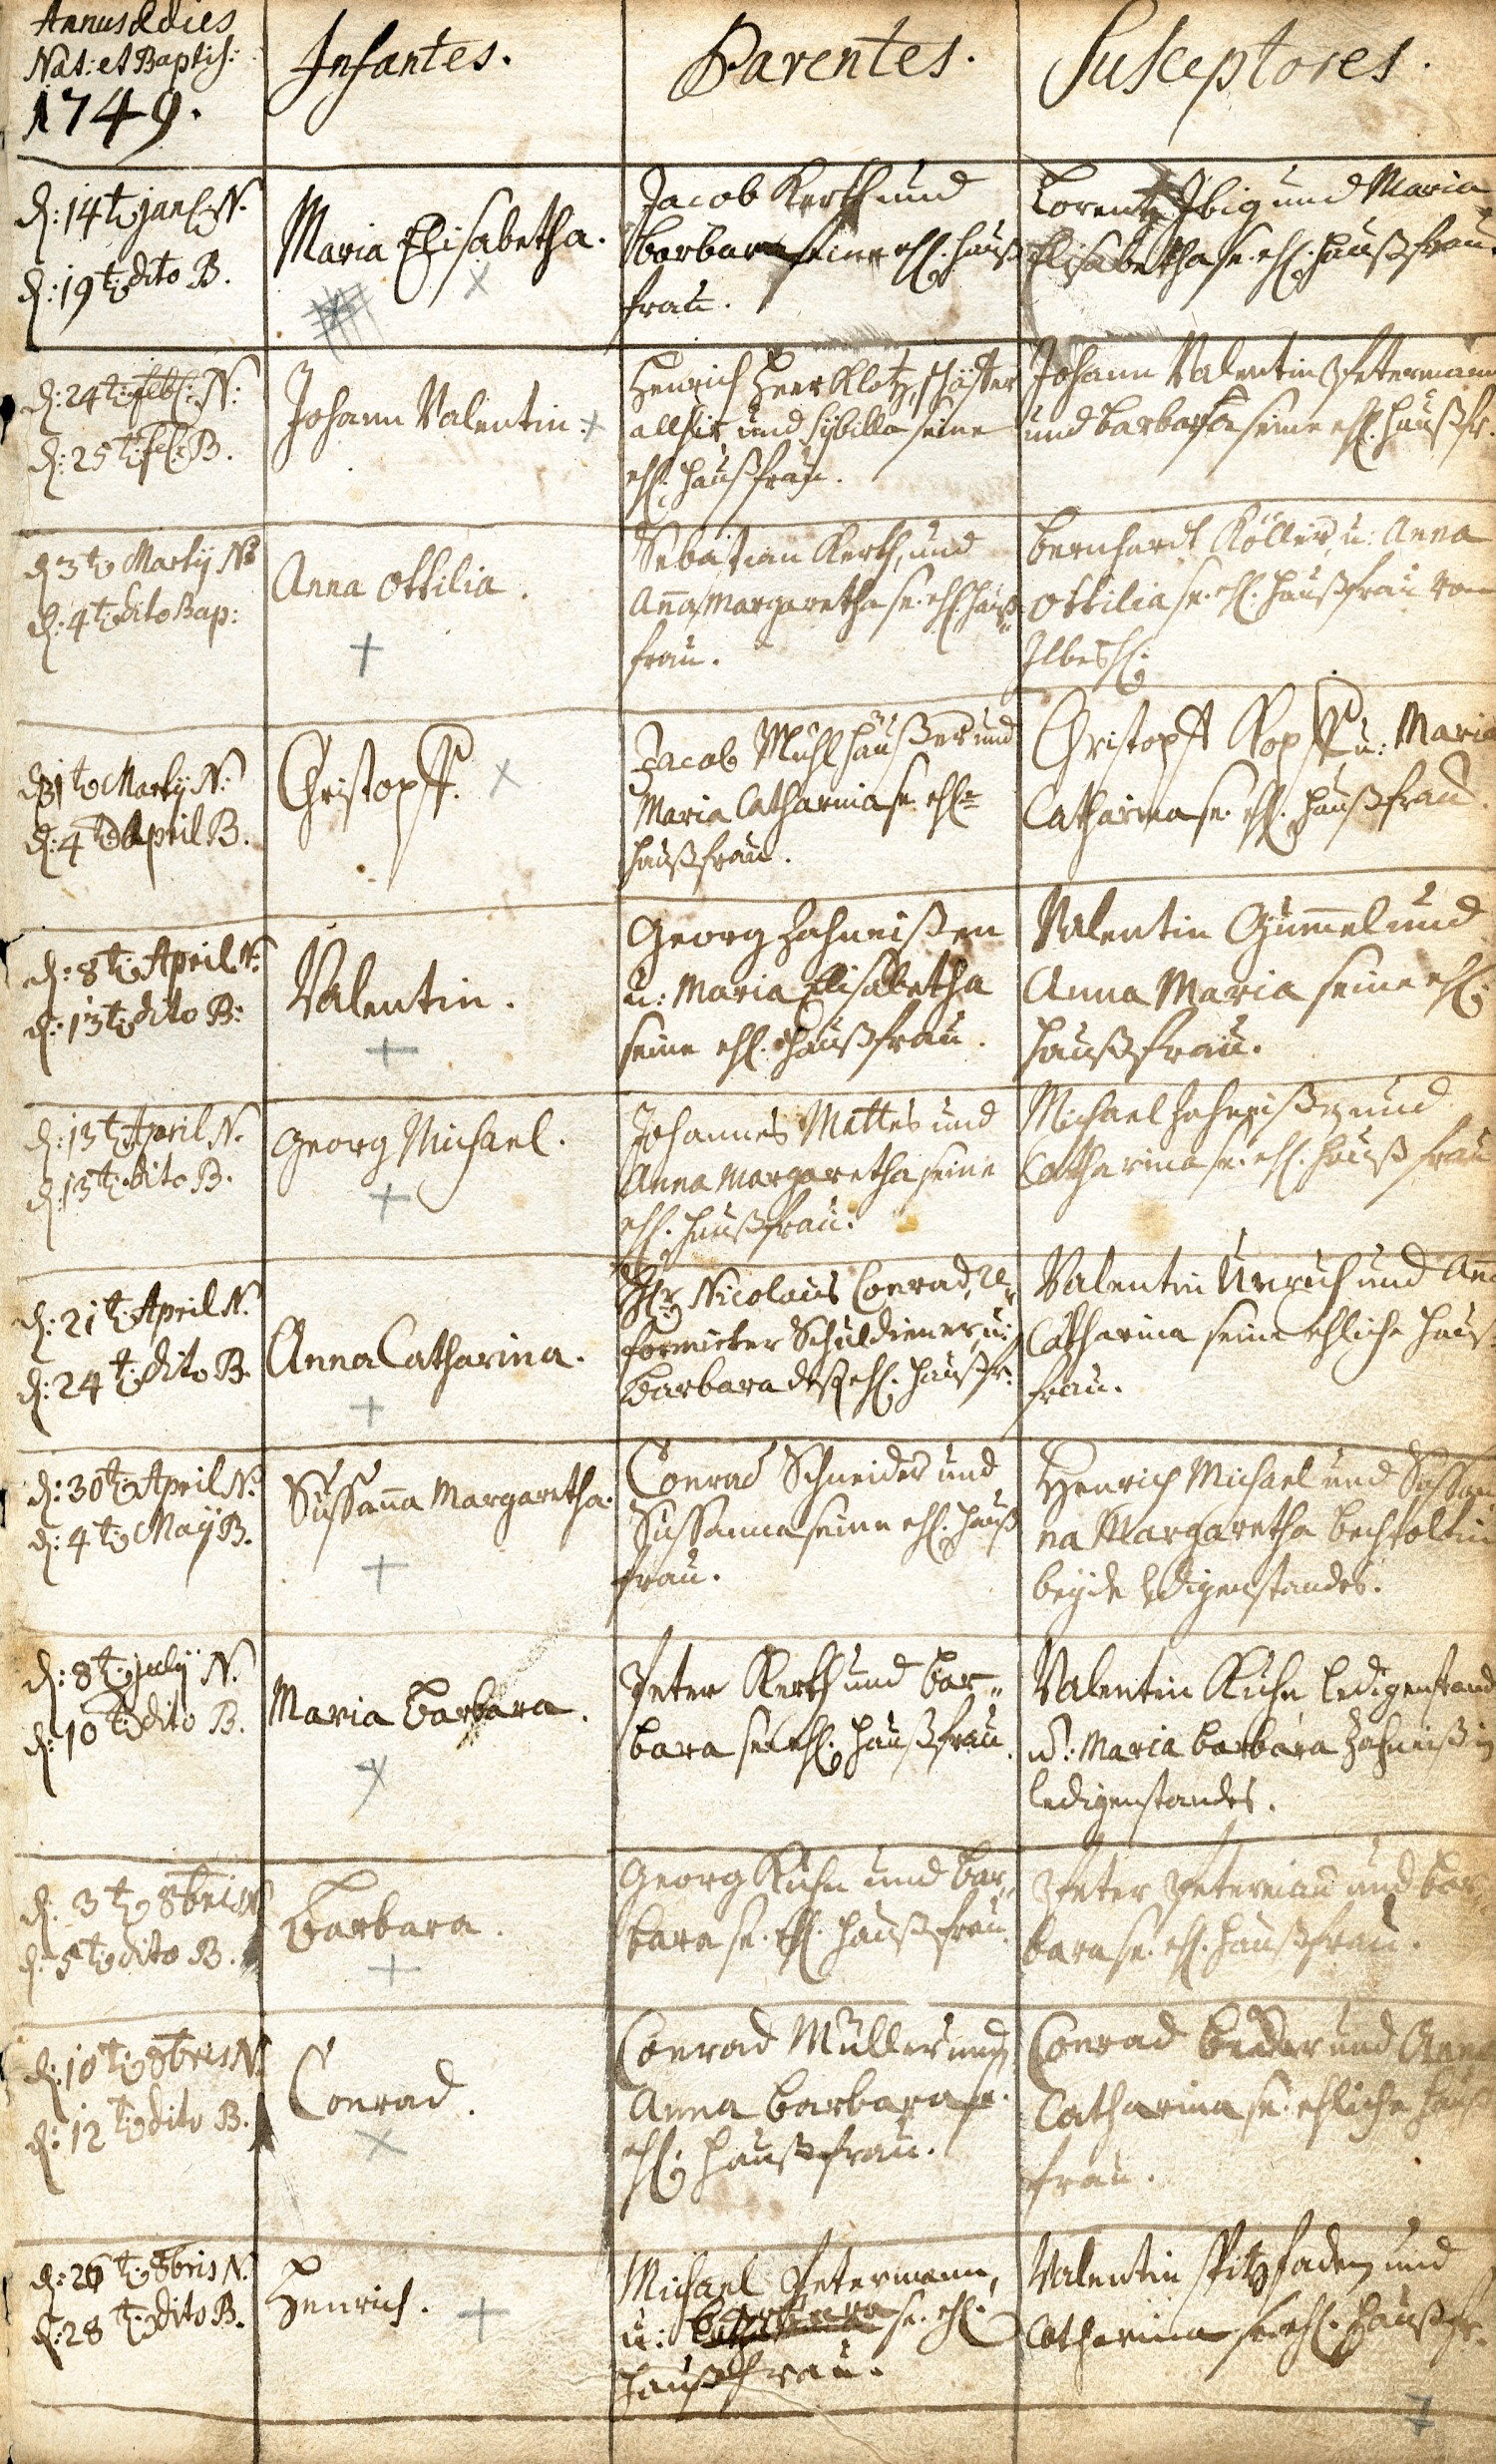 Annus & dies
Nat: et Baptis:
1749.
Infantes.
Parentes.
Susceptores.
d: 14t: jan: N.
d: 19t: dito B.
Maria Elisabetha.
Jacob Kerth und
barbara seine ehl. hauß
frau.
Lorentz Ibig und Maria
Elisabetha se. ehl. haußfrau.
d: 24t: feb: N:
d: 25t: feb: B.
Johann Valentin.
Henrich Heerklotz, schäffer
allhir, und sybilla seine
ehl. haußfrau.
Johann Valentin Petermann
und barbara seine ehl. haußfr.
d 3t Martij N:
d: 4t dito Bap:
Anna Ottilia.
Sebastian Kerth, und
Anna Margaretha se. ehl. hauß
frau.
bernhardt Köller, u: Anna
Ottilia se. ehl. haußfrau von
Ilbesh:
d 31t Martij N:
d: 4t April B.
Christopff.
Jacob Mühlhäußer und
Maria Catharina se. ehl=
haußfrau.
Christopff Kopff u: Maria
Catharina se. ehl. haußfrau.
d: 8t: April N:
d: 13t: dito B:
Valentin.
Georg Zahneißen
u: Maria Elisabetha
seine ehl. haußfrau.
Valentin Gümel und
Anna Maria seine ehl:
haußfrau.
d: 13t April N.
d: 15t: dito B.
Georg Michael.
Johannes Mattes und
Anna Margaretha seine
ehl. haußfrau.
Michael Zahneißen und
Catharina se. ehl. hauß frau
d: 21t: April N.
d: 24t: dito B.
Anna Catharina.
Hr: Nicolaus Conrad, re
formirter Schuldiener, u:
barbara deß ehl. haußfr:
Valentin Unruh und Anna
Catharina seine ehliche hauß
frau.
d: 30t: April N:
d: 4t: Maij B.
Sussanna Margaretha.
Conrad Schneider und
Sussanna seine ehl. hauß
frau.
Henrich Michael und Sussan
na Margaretha bechtoltin
beyde ledigenstandes.
d: 8t: july N.
d: 10t: dito B.
Maria barbara.
Peter Kerth und bar„
bara se. ehl. haußfrau.
Valentin Kuhn ledigenstand
u: Maria barbara Zahneißin
ledigenstandes.
d. 3t: 8bris N
d: 5t: dito B.
barbara.
Georg Kuhn und bar„
bara se. ehl. haußfrau.
Peter Peterman und bar„
bara se. ehl. haußfrau.
d: 10t: 8bris N.
d: 12t: dito B.
Conrad.
Conrad Müller und
Anna barbara se.
ehl: haußfrau.
Conrad beder und Anna
Catharina se. ehliche hauß
frau.
d: 26t: 8bris N.
d: 28t: dito B.
Henrich.
Michael Petermann,
u: barbara se. ehl.
haußfrau.
Valentin Spitzfaden und
Catharina se. ehl. haußfr.
7